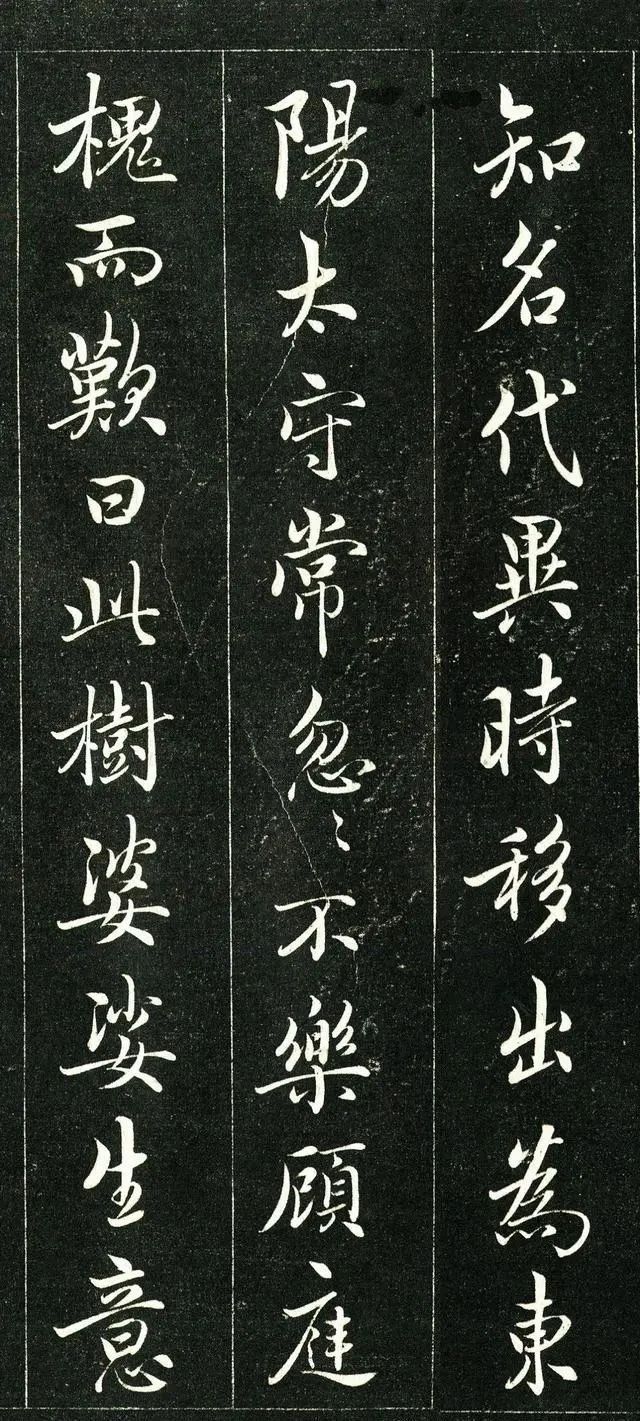 知名代異時移出為東
陽太守常忽〻不樂顧庭
槐而歎曰此樹婆娑生意